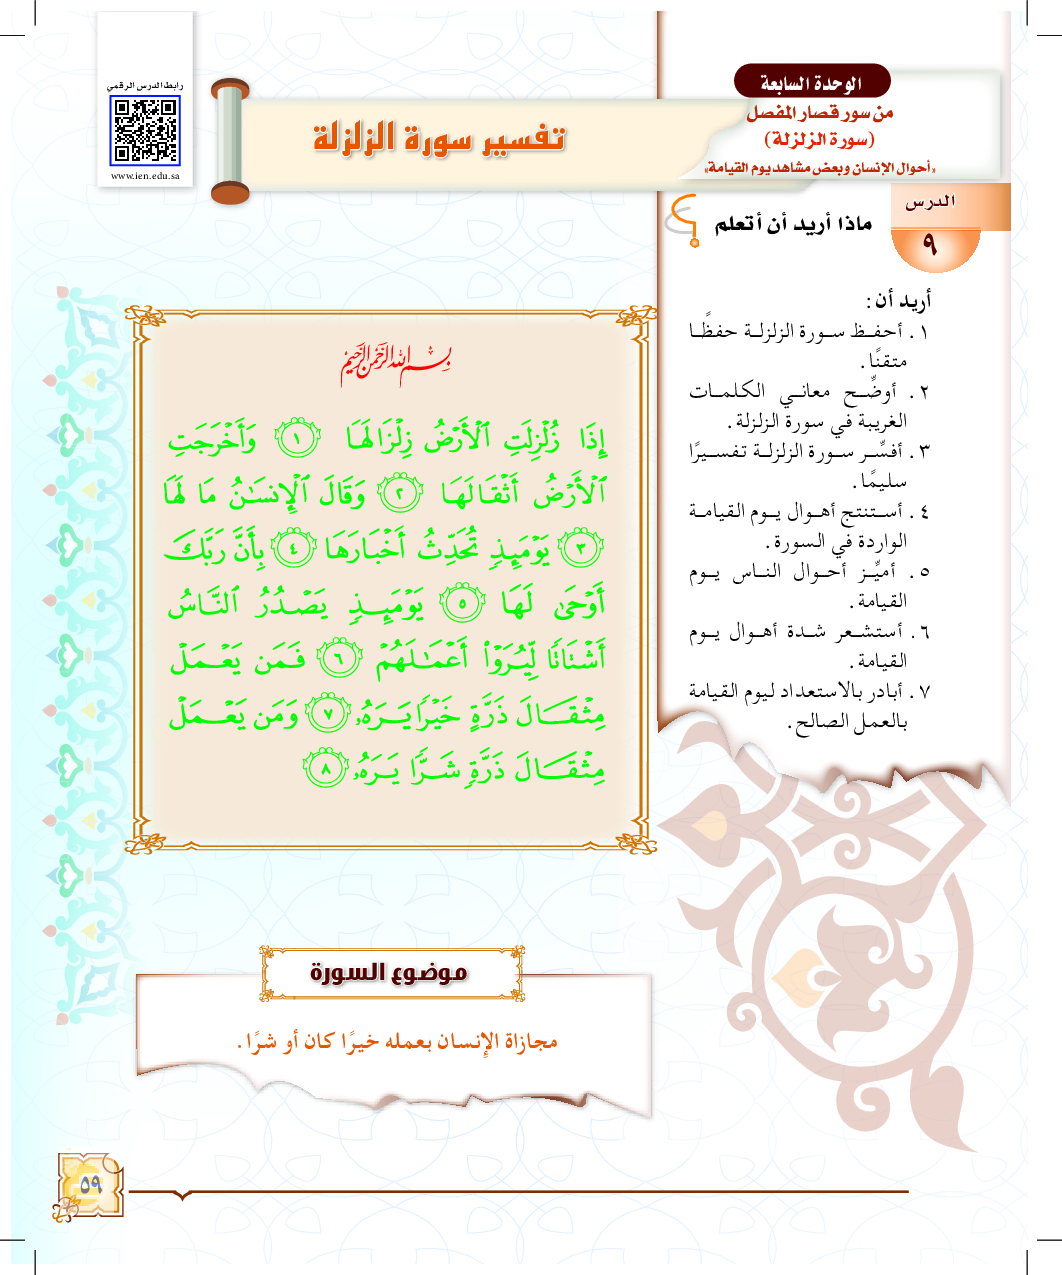 رابط الدرس الرقمي
www.ien.edu.sa
الوحدة السابعة
من سور قصار المفصل
(سورة الزلزلة)
«أحوال الإنسان وبعض مشاهد يوم القيامة»
تفسير سورة الزلزلة
الدرس
٩
ماذا أريد أن أتعلم
أريد أن:
١. أحفـظ سـورة الزلزلـة حفظًـا
متقنًا.
٢. أوضِّـح معانـي الكلـمات
الغريبة في سورة الزلزلة.
٣. أفسِّـر سـورة الزلزلـة تفسـيرًا
سليمًا.
٤. أسـتنتج أهـوال يـوم القيامـة
الواردة في السورة.
٥. أميِّـز أحـوال النـاس يـوم
القيامة.
٦. أستشـعر شـدة أهـوال يـوم
القيامة.
٧. أبادر بالاستعداد ليوم القيامة
بالعمل الصالح.
بِسْمِ اللهِ الرَّحْمَنِ الرَّحِيمِ
إِذَا زُلْزِلَتِ ٱلْأَرْضُ زِلْزَالَهَا ١ وَأَخْرَجَتِ
ٱلْأَرْضُ أَثْقَالَهَا ٢ وَقَالَ ٱلْإِنسَٰنُ مَا لَهَا
٣ يَوْمَئِذٍ تُحَدِّثُ أَخْبَارَهَا ٤ بِأَنَّ رَبَّكَ
أَوْحَىٰ لَهَا ٥ يَوْمَئِذٍ يَصْدُرُ ٱلنَّاسُ
أَشْتَاتًا لِّيُرَوْا۟ أَعْمَٰلَهُمْ ٦ فَمَن يَعْمَلْ
مِثْقَالَ ذَرَّةٍ خَيْرًا يَرَهُۥ ٧ وَمَن يَعْمَلْ
مِثْقَالَ ذَرَّةٍ شَرًّا يَرَهُۥ ٨
موضوع السورة
مجازاة الإنسان بعمله خيرًا كان أو شرًا.
٥٩